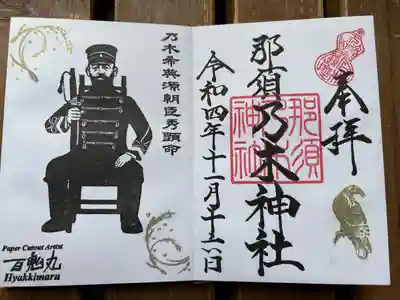 奉拝
那須乃木神社
那須
乃木
神社
令和四年十一月二十六日
乃木希典源朝臣秀顕命
Paper Cutout Artist
百鬼丸
Hyakkimaru